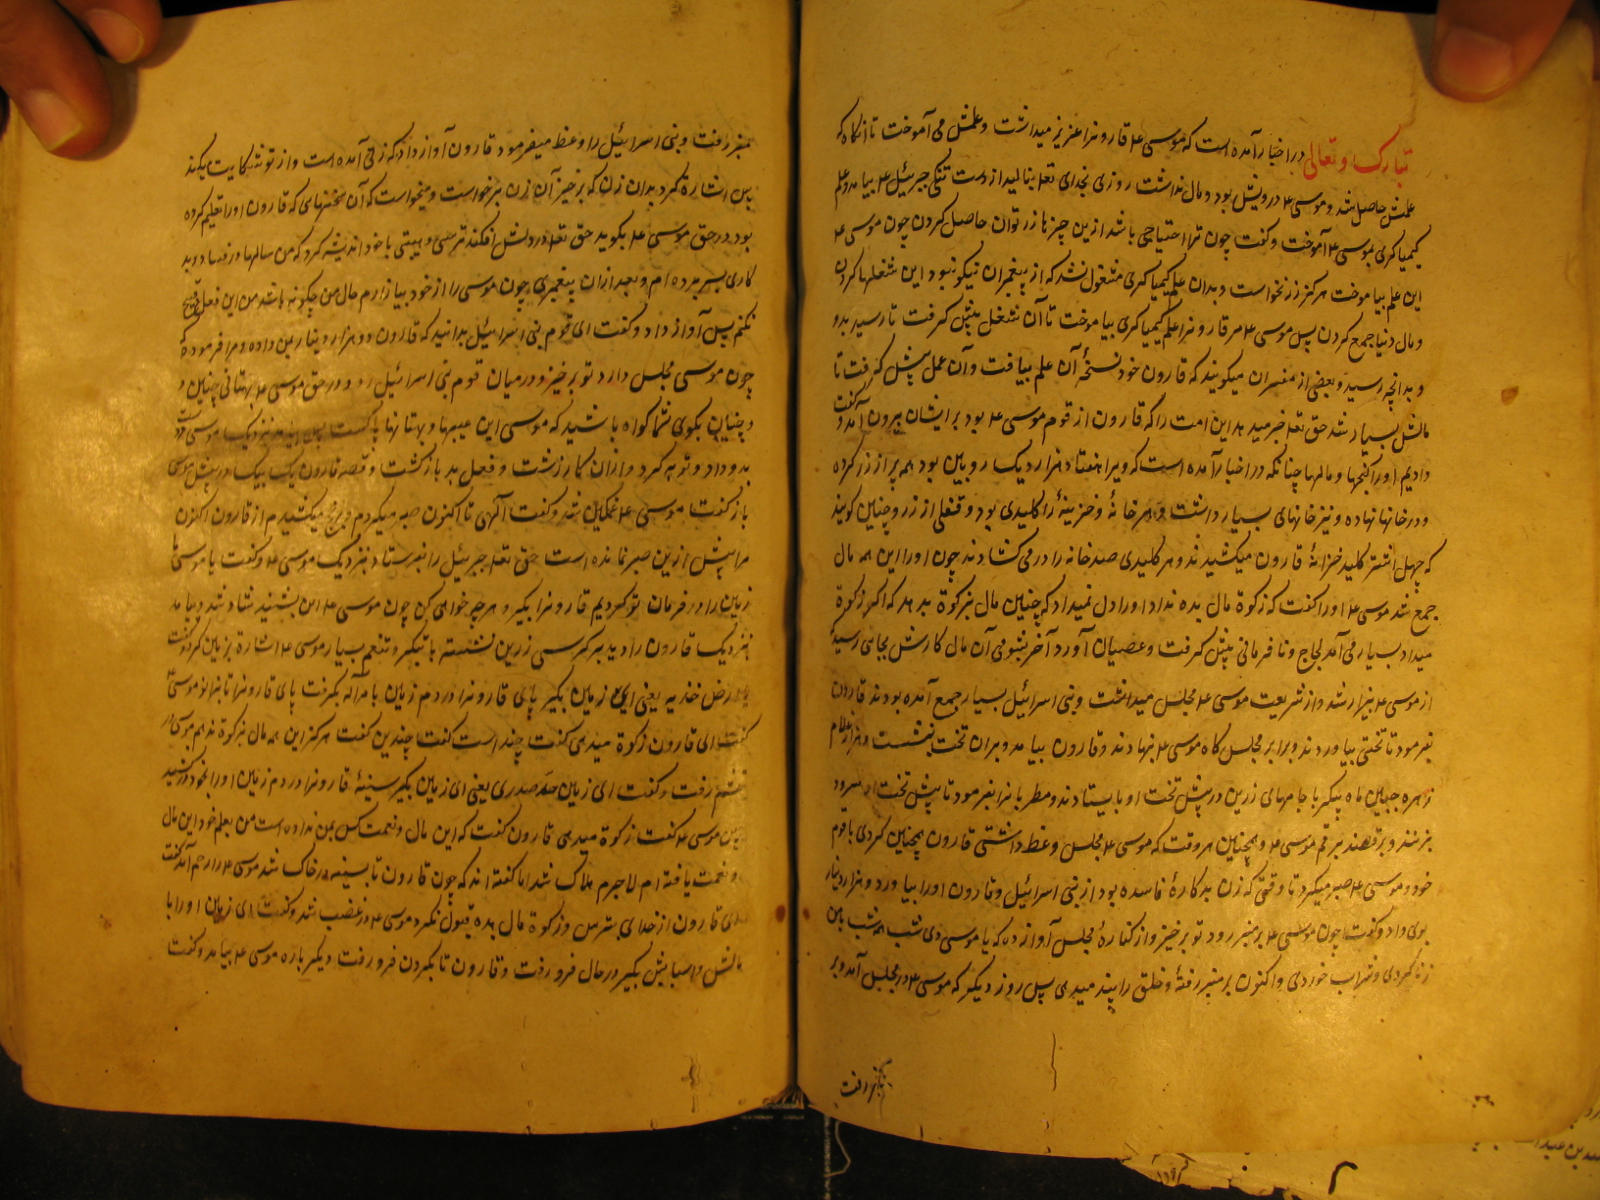 تبارک و تعالی در اخبار آمده است که موسی ع م قارونرا عزیز میداشت و علمش می آموخت تا آنکاه که
علمش حاصل شد و موسی ع م درویش بود و مال نداشت روزی بخدای تعه بنالید از دست تنکی جبرئیل ع م بیامد و علم
کیمیا کری بموسی ع م آموخت و کفت چون ترا احتیاجی باشد ازین چیزها زر توان حاصل کردن چون موسی ع م
این علم بیاموخت هرکز زر نخواست و بدان علم کیمیا کری مشغول نشد که از پیغمبران نیکو نبود این شغلها کردن
و مال دنیا جمع کردن پس موسی ع م مر قارونرا علم کیمیا کری بیاموخت تا آن شغل پیش کرفت تا رسید بدو
و بدانچه رسید و بعضی از مفسران میکویند که قارون خود نسخهٔ آن علم بیافت و آن عمل پیش کرفت تا
مالش بسیار شد حق تعه خبر مید بد این امت را که قارون از قوم موسی ع م بود بر ایشان بیرون آمد و کفت
دادیم اورا کنجها و مالها چنانکه در اخبار آمده است که ویرا هفتاد هزار دیک رویین بود همه پر از زر کرده
و در خانها نهاده و نیز خانهای بسیار داشت و هر خانهٔ و خزینهٔ را کلیدی بود و قفلی از زر و چنین کویند
که چهل اشتر کلید خزانهٔ قارون میکشیدند و هر کلیدی صد خانه را در می کشادند چون اورا این همه مال
جمع شد موسی ع م اورا کفت که زکوة مال بده نداد اورا دل نمیداد که چنین مال بزکوة بدهد که اکر زکوة
میداد بسیار می آمد لجاج و نا فرمانی پیش کرفت و عصیان آورد آخر بشومی آن مال کارش بجایی رسید که
از موسی ع م بیزار شد و از شریعت موسی ع م مجلس میداشت و بنی اسرائیل بسیار جمع آمده بودند قارون
بفرمود تا تختی بیاوردند و برابر مجلس کاه موسی ع م بنهادند و قارون بیامد و بران تخت بنشست و هزار غلام
زهره جبین ماه پیکر با جامهای زرین در پیش تخت او بایستادند و مطربانرا بفرمود تا پیش تخت او سرود
بزنند و برقصند برقم موسی ع م و همچنین هر وقت که موسی ع م مجلس وعظ داشتی قارون همچنین کردی با قوم
خود و موسی ع م صبر میکرد تا وقتی که زن بدکارهٔ فاسده بود از بنی اسرائیل و قارون اورا بیاورد و هزار دینار
بوی داد و کفت چون موسی ع م بر منبر رود تو برخیز و از کنارهٔ مجلس آواز ده که یا موسی دی شب همه شب با من
زنا کردی و شراب خوردی و اکنون بر منبر رفتهٔ و خلق را پند میدهی پس روز دیکر که موسی ع م در مجلس آمد و بر
بمنبر رفت
منبر رفت و بنی اسرائیل را وعظ میفرمود قارون آواز داد که زنی آمده است و از تو شکایت میکند
پس اشارة کرد بدان زن که برخیز آن زن برخواست و میخواست که آن سخنهای که قارون اورا تعلیم کرده
بود در حق موسی ع م بکوید حق تعه در دلش افکند ترسی و هیبتی با خود اندیشه کرد که من سالها در فساد و بد
کاری بسر برده ام و بعد ازان پیغمبری چون موسی را از خود بیازارم حال من چکونه باشد من این فعل قبیح
نکنم پس آواز داد و کفت ای قوم بنی اسرائیل بدانید که قارون دو هزار دینار بمن داده و مرا فرموده که
چون موسی مجلس دارد تو برخیز و در میان قوم بنی اسرائیل رو و در حق موسی ع م بهتانی چنین و
و چنان بکوی شما کواه باشید که موسی ازین عیبها و بهتانها پاکست پس آمد نزدیک موسی دست
بدو داد و توبه کرد و ازان کار زشت و فعل بد بازکشت و قصهٔ قارون یک بیک در پیش موسی
باز کفت موسی ع م غمکین شد و کفت آلهی تا اکنون صبر میکردم و رنج میکشیدم از قارون اکنون
مرا بیش ازین صبر نمانده است حق تعه جبرئیل را بفرستاد بنزدیک موسی ع م و کفت یا موسی ما
زمین را در فرمان تو کردیم قارونرا بکیر و هرچه خواهی کن چون موسی ع م این بشنید شاد شد و بیامد
بنزدیک قارون را دید بر کرسی زرین نشسته با تکبر و تنعم بسیار موسی ع م اشارة بزمین کرد و کفت
یا ارض خذیه یعنی ای زمین بکیر پای قارونرا در دم زمین بامر آله بکرفت پای قارونرا تا بزانو موسی ع م
کفت ای قارون زکوة میدهی کفت چند است کفت چندین کفت هرکز این همه مال بزکوة ندهم موسی در
خشم رفت و کفت ای زمین خذ صدری یعنی ای زمین بکیر سینهٔ قارونرا در دم زمین اورا بخود درکشید
موسی ع م کفت زکوة میدهی قارون کفت که این مال و نعمت کس بمن نداده است من بعلم خود این مال
و نعمت یافته ام لاجرم هلاک شد اما کفته اند که چون قارون تا بسینه در خاک شد موسی ع م را رحم آمد کفت
ای قارون از خدای بترس و زکوة مال بده قبول نکرد موسی ع م در غضب شد و کفت ای زمین اورا با
مالش و اسبابش بکیر در حال فرو رفت و قارون تا بکردن فرو رفت دیکر باره موسی ع م بیامد و کفت